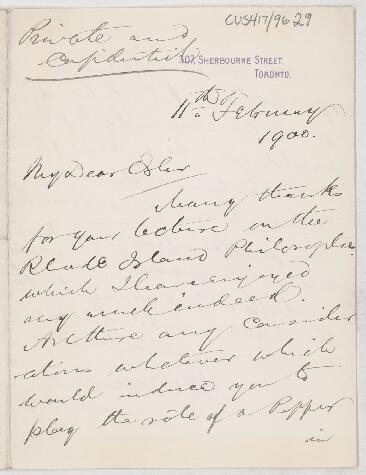 CUS417/96.29
Private and
Confidential
307, SHERBOURNE STREET.
TORONTO.
11th of February
1900.
My Dear Osler
Many thanks
for your lecture on the
Rhode Island Philosopher
which I have enjoyed
very much indeed.
Are there any consider
ations whatever which
would induce you to
play the rôle of a Pepper
in